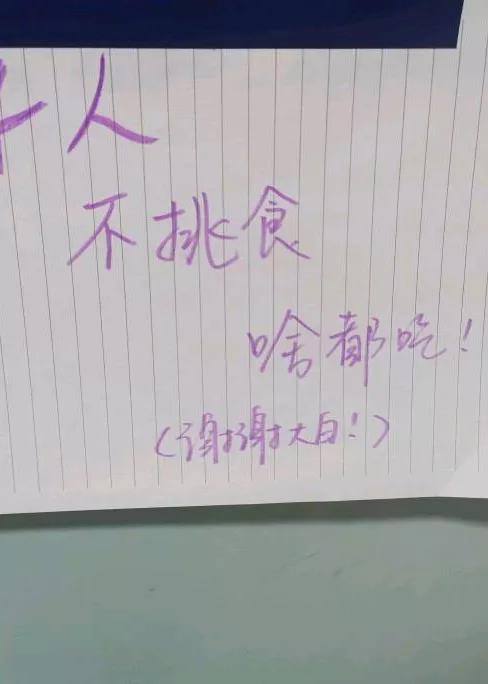 人
不挑食
啥都吃!
(谢谢大白!)